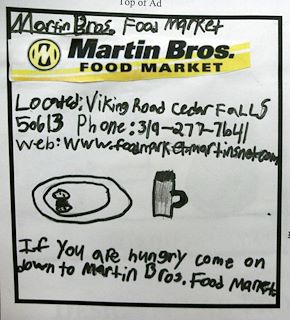 Top of Ad
Martin Bros. Food Market
M Martin Bros.
FOOD MARKET
Located: Viking Road Cedar Falls
50613 Phone: 319-277-7641
web: www.foodmarket.martinsnet.com
If you are hungry come on
down to Martin Bros. Food Market